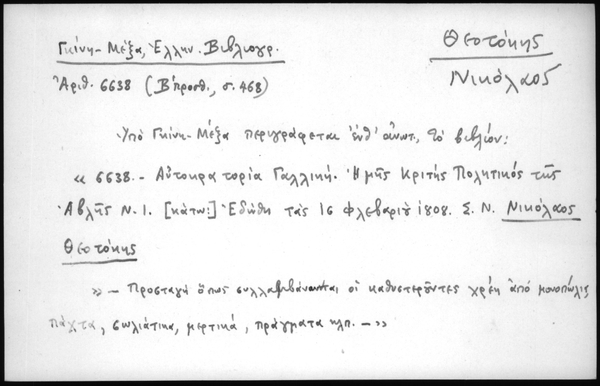 Γκίνη-Μέξα, Ἑλλην. Βιβλιογρ.
Θεοτόκης
Νικόλαος
Ἀριθ. 6638 (Β' προσθ., σ. 468)
Ὑπὸ Γκίνη-Μέξα περιγράφεται ἐνθ' ἀνωτ., τὸ βιβλίον:
« 6638. - Αὐτοκρατορία Γαλλική. Ὁ μῆς Κριτὴς Πολιτικός τῆς
Αβλῆς Ν. Ι. [κάτω:] Ἐδώθη τὰς 16 Φλεβαριȣ 1808. Σ. Ν. Νικόλαος
Θεοτόκης
» - Προσταγὴ ὅπως συλλαμβάνωνται οἱ καθυστεροῦντες χρέη ἀπὸ μονοπώλις
πάχτα, σωλιάτικα, μερτικά, πράγματα κλπ. - »